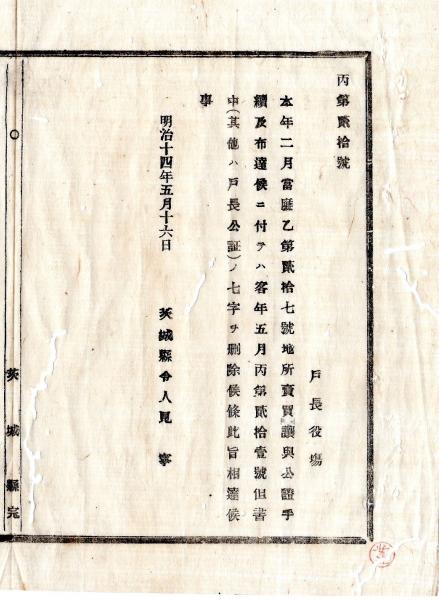 丙第貳拾號
戸長役塲
本年二月當廳乙第貳拾七號地所賣買讓與公證手
續及布達候ニ付テハ客年五月丙第貳拾壹號但書
中(其他ハ戸長公証)ノ七字ヲ刪除候條此旨相達候
事
明治十四年五月十六日
茨城縣令人見 寧
茨城縣完